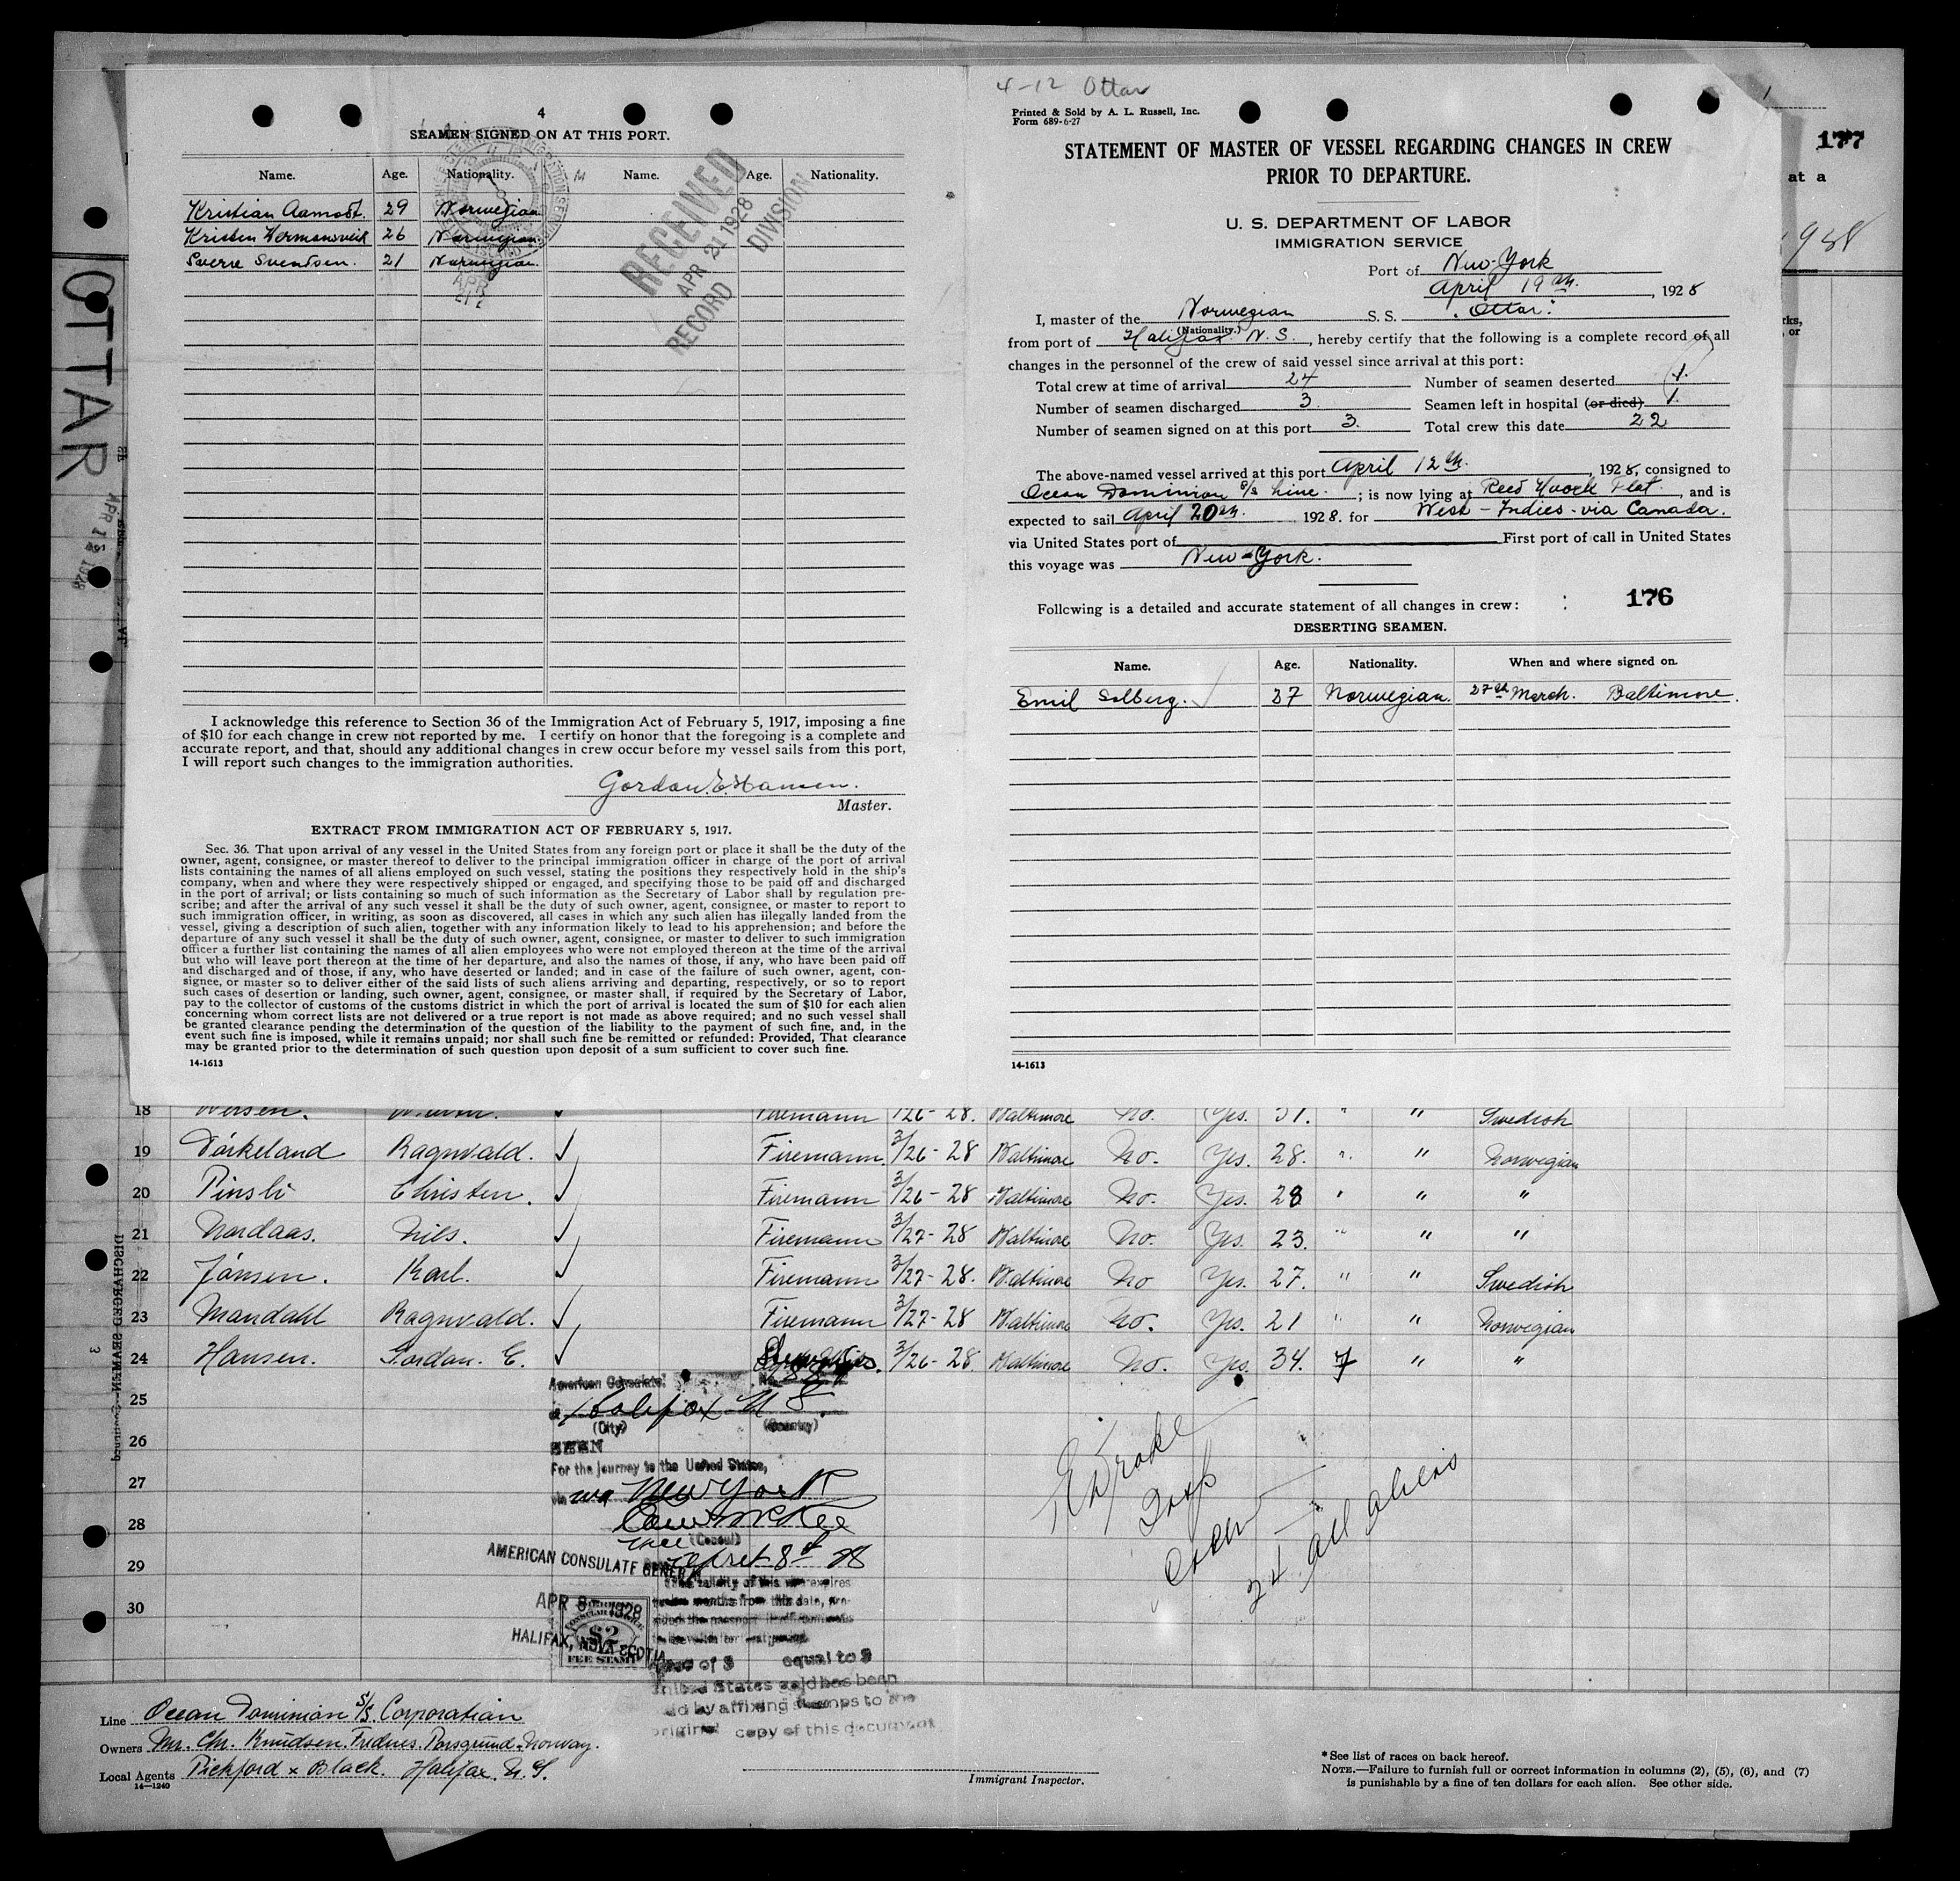 4
SEAMEN SIGNED ON AT THIS PORT.
Name. Age. Nationality. Name. Age. Nationality.
Kristian Aamodt. 29 Norwegian
Kristen 26 Norwegian.
Sverre Svendsen. 21 Norwegian.
RECEIVED
APR 21 1928
RECORD DIVISION
I acknowledge this reference to Section 36 of the Immigration Act of February 5, 1917, imposing a fine
of $10 for each change in crew not reported by me. I certify on honor that the foregoing is a complete and
accurate report, and that, should any additional changes in crew occur before my vessel sails from this port,
I will report such changes to the immigration authorities.
Gordon. E. Hansen.
Master.
EXTRACT FROM IMMIGRATION ACT OF FEBRUARY 5, 1917.
Sec. 36. That upon arrival of any vessel in the United States from any foreign port or place it shall be the duty of the
owner, agent, consignee, or master thereof to deliver to the principal immigration officer in charge of the port of arrival
lists containing the names of all aliens employed on such vessel, stating the positions they respectively hold in the ship's
company, when and where they were respectively shipped or engaged, and specifying those to be paid off and discharged
in the port of arrival; or lists containing so much of such information as the Secretary of Labor shall by regulation pre-
scribe; and after the arrival of any such vessel it shall be the duty of such owner, agent, consignee, or master to report to
such immigration officer, in writing, as soon as discovered, all cases in which any such alien has illegally landed from the
vessel, giving a description of such alien, together with any information likely to lead to his apprehension; and before the
departure of any such vessel it shall be the duty of such owner, agent, consignee, or master to deliver to such immigration
officer a further list containing the names of all alien employees who were not employed thereon at the time of the arrival
but who will leave port thereon at the time of her departure, and also the names of those, if any, who have been paid off
and discharged and of those, if any, who have deserted or landed; and in case of the failure of such owner, agent, con-
signee, or master so to deliver either of the said lists of such aliens arriving and departing, respectively, or so to report
such cases of desertion or landing, such owner, agent, consignee, or master shall, if required by the Secretary of Labor,
pay to the collector of customs of the customs district in which the port of arrival is located the sum of $10 for each alien
concerning whom correct lists are not delivered or a true report is not made as above required; and no such vessel shall
be granted clearance pending the determination of the question of the liability to the payment of such fine, and, in the
event such fine is imposed, while it remains unpaid; nor shall such fine be remitted or refunded: Provided, That clearance
may be granted prior to the determination of such question upon deposit of a sum sufficient to cover such fine.
14-1613
4-12 Ottar
Printed & Sold by A. L. Russell, Inc.
Form 689-6-27
STATEMENT OF MASTER OF VESSEL REGARDING CHANGES IN CREW
PRIOR TO DEPARTURE.
U. S. DEPARTMENT OF LABOR
IMMIGRATION SERVICE
Port of New-York
April 19th. , 1928
I, master of the Norwegian S. S. "Ottar"
(Nationality.)
from port of Halifax N. S. , hereby certify that the following is a complete record of all
changes in the personnel of the crew of said vessel since arrival at this port:
Total crew at time of arrival 24 Number of seamen deserted 1.
Number of seamen discharged 3 Seamen left in hospital (or died) 1.
Number of seamen signed on at this port 3. Total crew this date 22
The above-named vessel arrived at this port April 12th. , 1928, consigned to
Ocean Dominion S/S Line. ; is now lying at Reed Hoock Flat. , and is
expected to sail April 20th. 1928. for West-Indies-via Canada.
via United States port of First port of call in United States
this voyage was New-York.
Following is a detailed and accurate statement of all changes in crew:
176
DESERTING SEAMEN.
Name. Age. Nationality. When and where signed on.
Emil Solberg. 27 Norwegian. 27th March. Baltimore.
14-1613
177
at a
OTTAR
APR 12 1928
18 Firemann 3/26-28. Baltimore No. Yes. 31. " " Swedish
19 Ragnvald. Firemann 3/26-28 Baltimore No. Yes. 28. " " Norwegian
20 Pinsli Christen. Firemann 3/26-28 Baltimore No. Yes. 28 " " "
21 Nordaas. Nils. Firemann 3/27-28 Baltimore No. Yes. 23. " " "
22 Jansen. Karl. Firemann 3/27-28. Baltimore No Yes. 27. " " Swedish
23 Mandahl Ragnvald. Firemann 3/27-28 Baltimore No. Yes. 21 " " Norwegian
24 Hansen. Gordon. E. 3/26-28. Baltimore No. Yes. 34. 7 " "
25
26
27
28
29
30
American Consulate
Halifax N S.
(City) (Country)
SEEN
For the journey to the United States,
via New York
(Consul)
April 8th 28
AMERICAN CONSULATE GENERAL
APR 8 - 1928
HALIFAX, NOVA SCOTIA
$2
FEE STAMP
equal to $
United States said has been
by affixing stamps to the
original copy of this document
Drake
Insp
24 all aliens
Line Ocean Dominion S/S. Corporation
Owners Mr. Chr. Knudsen. Frednes. Porsgrund. Norway.
Local Agents Pickford & Black. Halifax. N. S.
14-1240
Immigrant Inspector.
* See list of races on back hereof.
NOTE.—Failure to furnish full or correct information in columns (2), (5), (6), and (7)
is punishable by a fine of ten dollars for each alien. See other side.